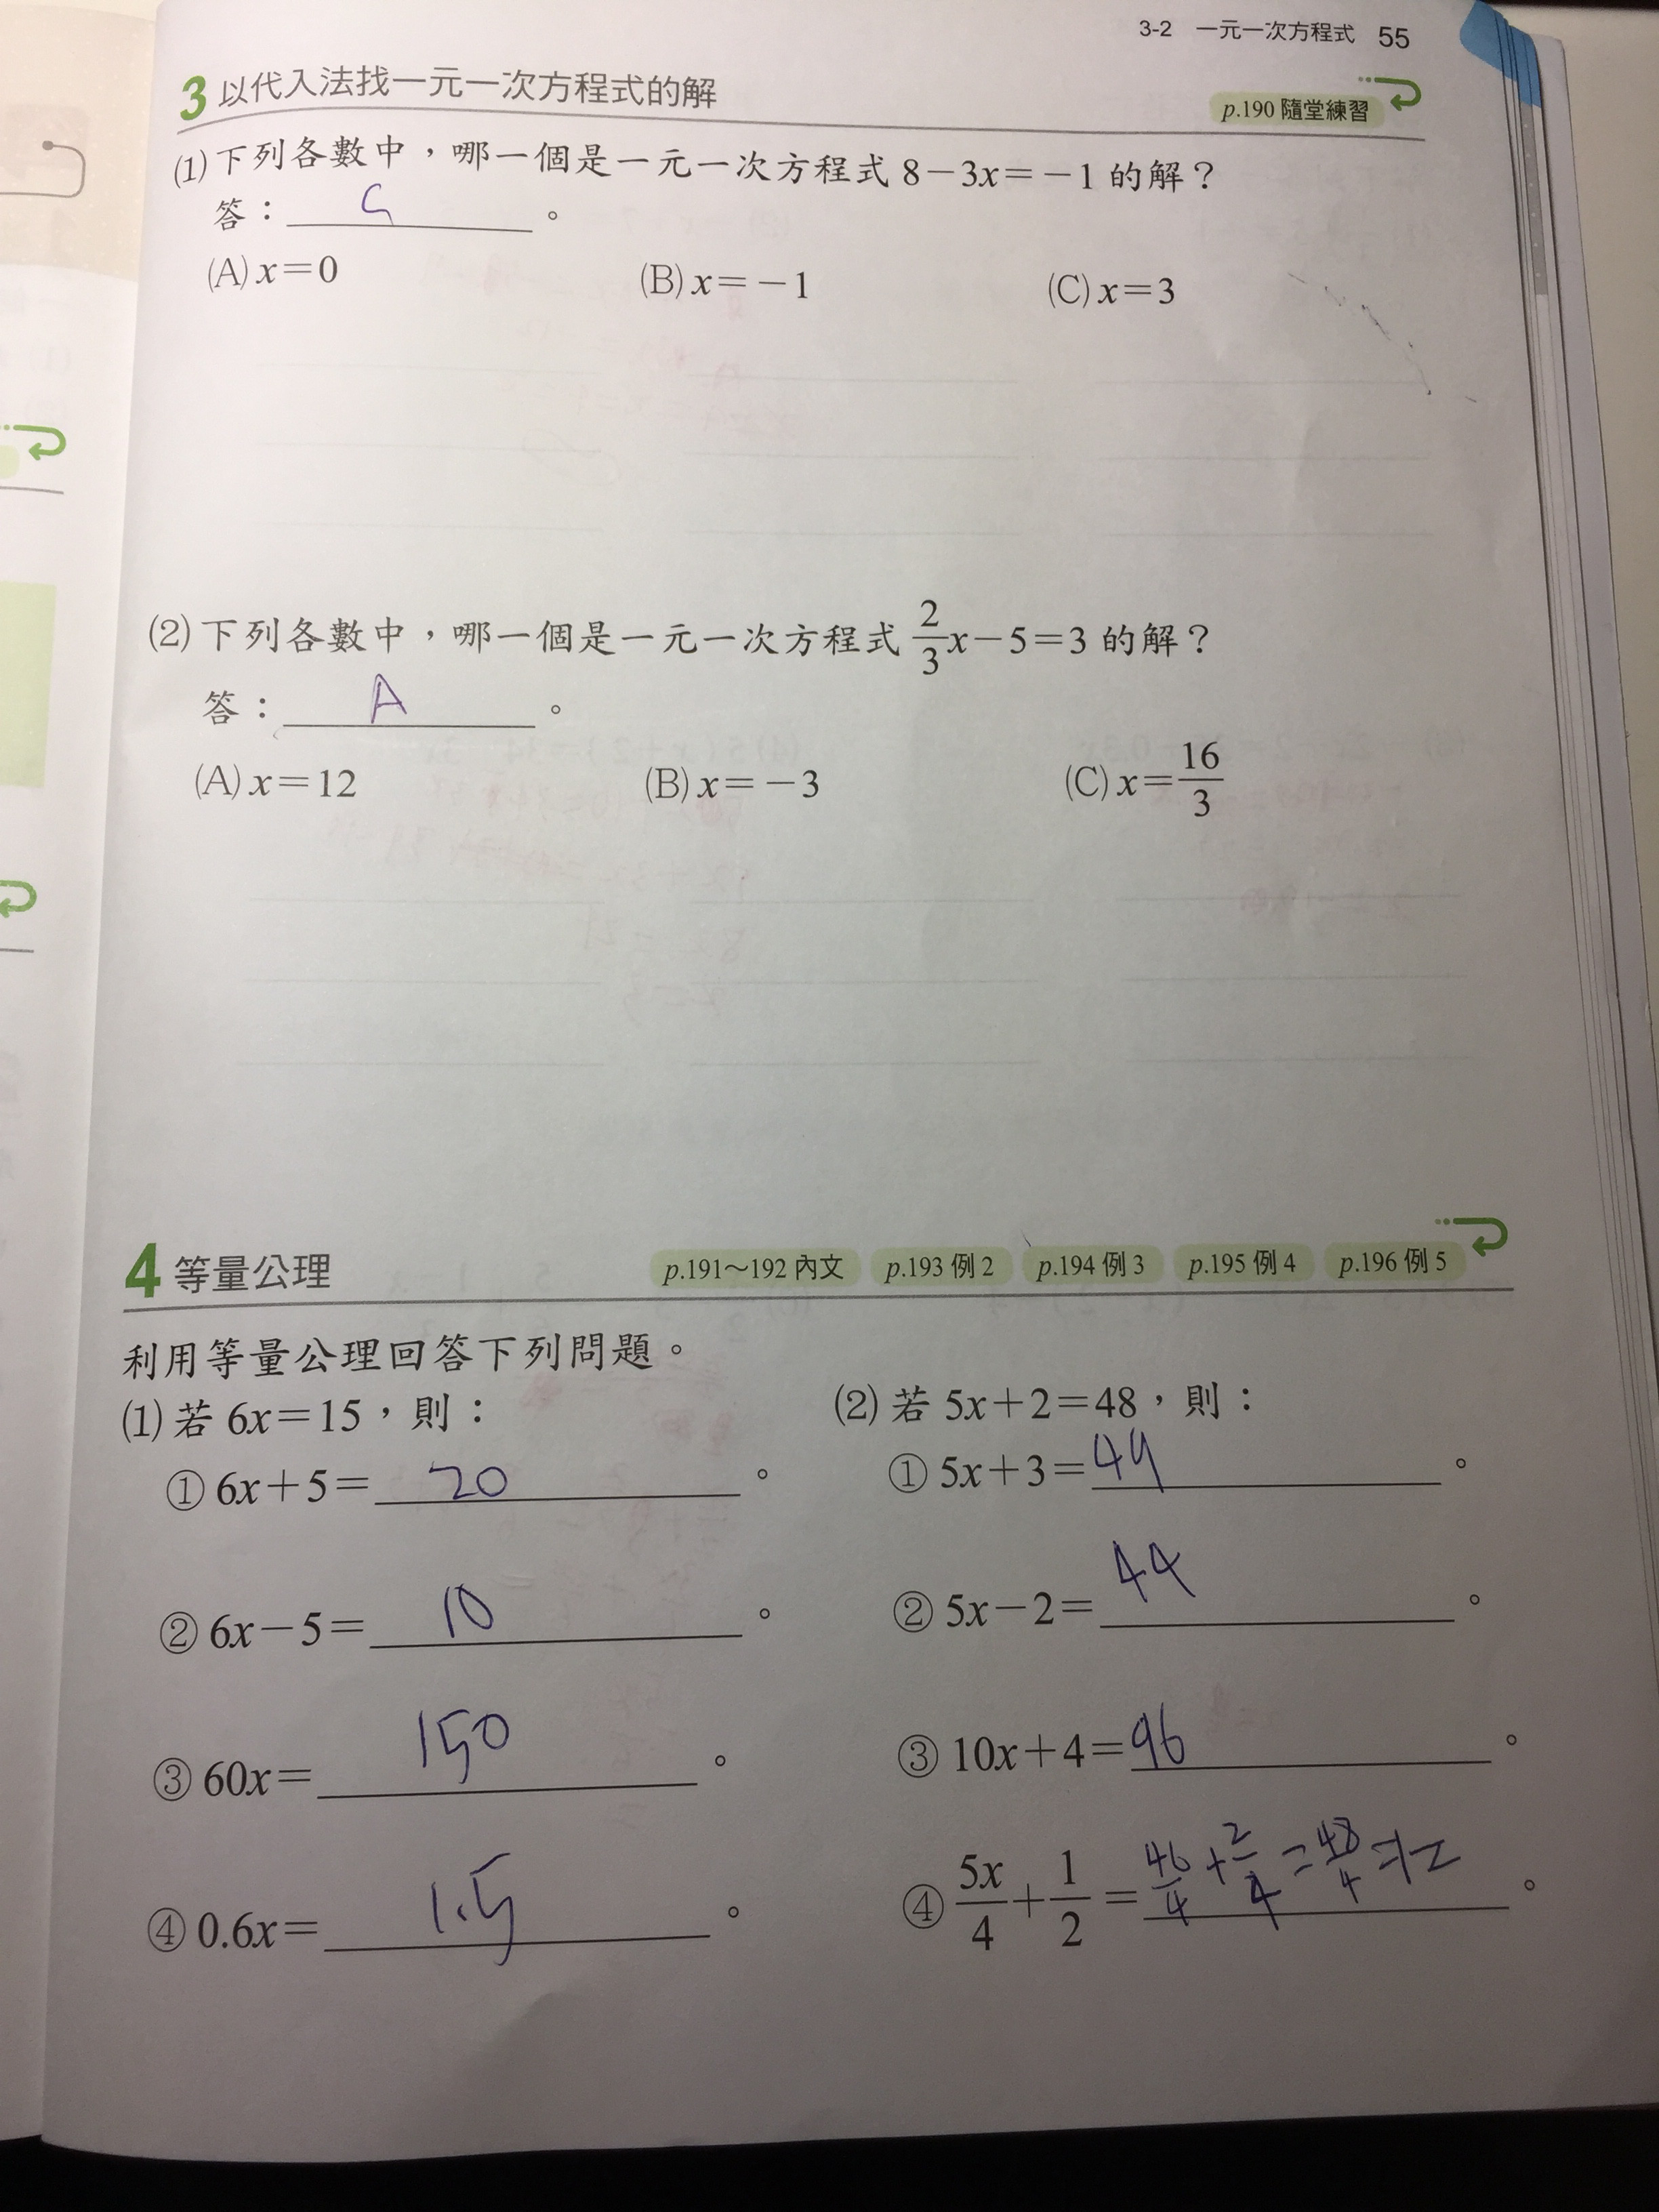 3-2 一元一次方程式 55
3 以代入法找一元一次方程式的解
p.190 隨堂練習
(1) 下列各數中，哪一個是一元一次方程式 8－3x＝－1 的解？
答：C。
(A) x＝0 (B) x＝－1 (C) x＝3
(2) 下列各數中，哪一個是一元一次方程式 2/3 x－5＝3 的解？
答：A。
(A) x＝12 (B) x＝－3 (C) x＝16/3
4 等量公理
p.191～192 內文 p.193 例 2 p.194 例 3 p.195 例 4 p.196 例 5
利用等量公理回答下列問題。
(1) 若 6x＝15，則：
① 6x＋5＝20。
② 6x－5＝10。
③ 60x＝150。
④ 0.6x＝1.5。
(2) 若 5x＋2＝48，則：
① 5x＋3＝49。
② 5x－2＝44。
③ 10x＋4＝96。
④ 5x/4＋1/2＝46/4+2/4=48/4=12。